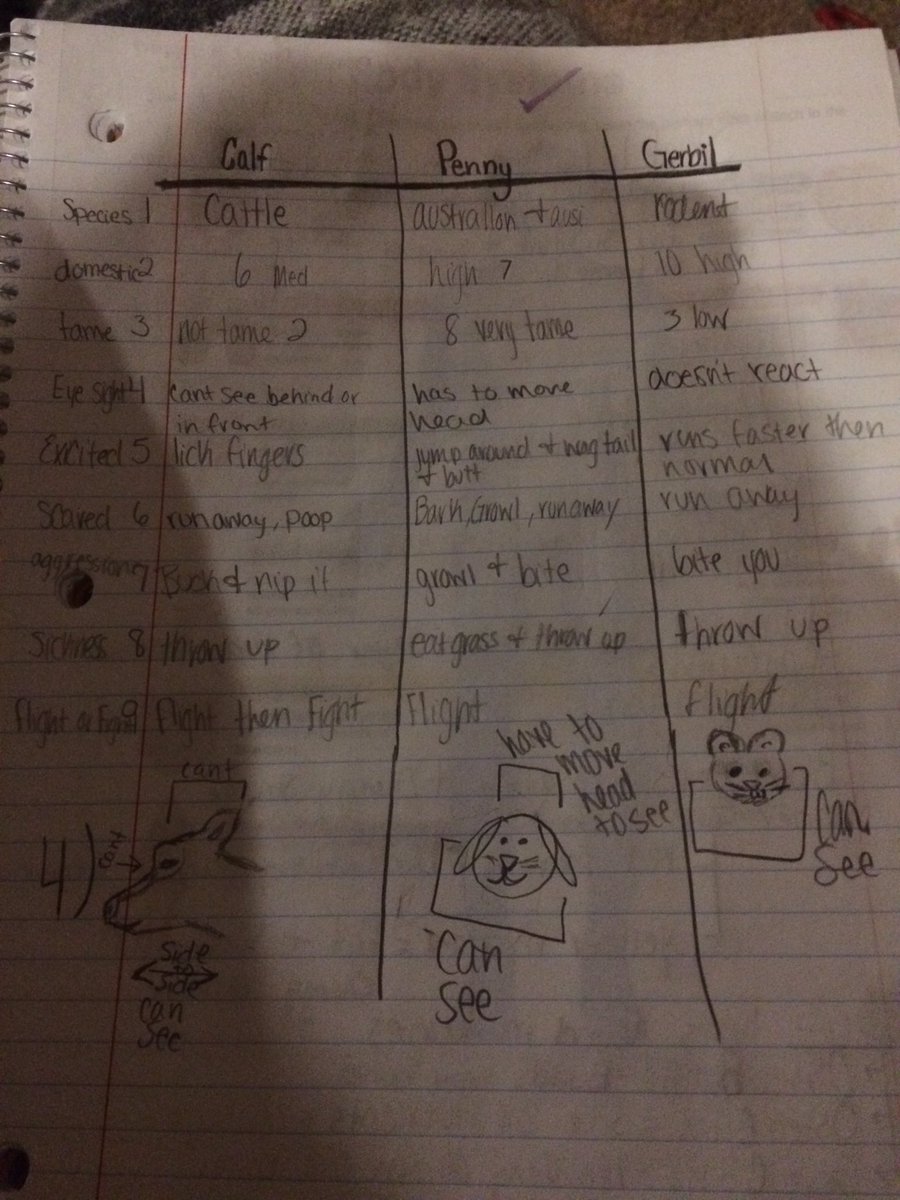 Calf Penny Gerbil
Species 1 Cattle australian + ausi rodent
domestic 2 6 med high 7 10 high
tame 3 not tame 2 8 very tame 3 low
Eye sight 4 cant see behind or has to move doesn't react
in front head
Excited 5 lick fingers jump around + wag tail runs faster then
+ butt normal
Scared 6 runaway, poop Bark, Growl, runaway run away
aggression 7 Buck & nip it growl + bite bite you
Sickness 8 throw up eat grass + throw up throw up
flight or Fight 9 flight then Fight Flight flight
have to
move
head
to see
cant
cant
4)
Can
See
Can
See
Side
to
Side
Can
See